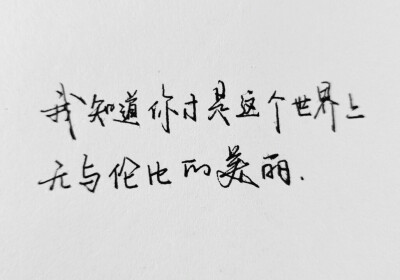 我知道你才是这个世界上
无与伦比的美丽.